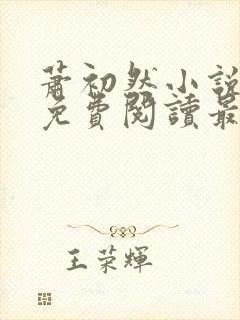 蕭初然小說
免費閱讀最
王荣輝